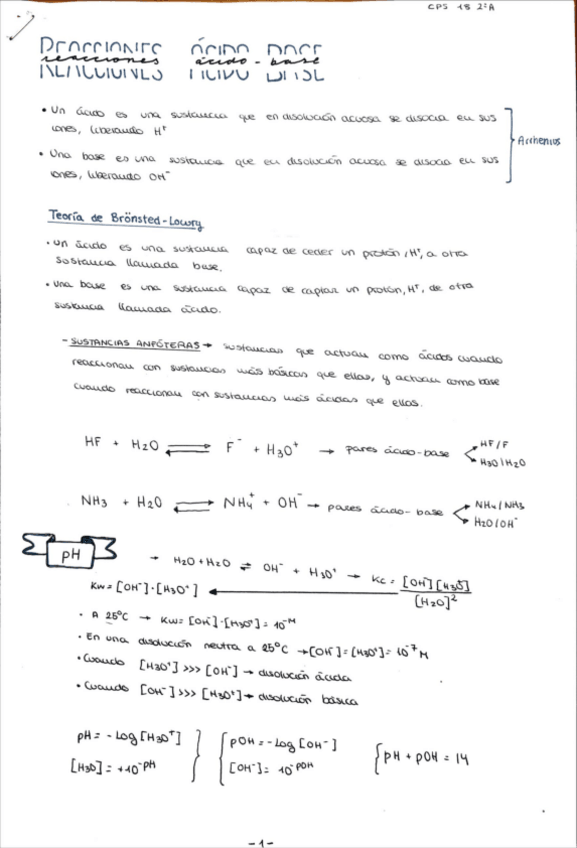 CPS 18 2ºA
REACCIONES ÁCIDO BASE
reacciones ácido-base
• Un ácido es una sustancia que en disolución acuosa se disocia en sus
iones, liberando H⁺
• Una base es una sustancia que en disolución acuosa se disocia en sus
iones, liberando OH⁻
Arrhenius
Teoría de Brönsted-Lowry
• Un ácido es una sustancia capaz de ceder un protón, H⁺, a otra
sustancia llamada base.
• Una base es una sustancia capaz de captar un protón, H⁺, de otra
sustancia llamada ácido.
- SUSTANCIAS ANFÓTERAS → sustancias que actuan como ácidos cuando
reaccionan con sustancias más básicas que ellas, y actuan como base
cuando reaccionan con sustancias más ácidas que ellas.
HF + H₂O ⇌ F⁻ + H₃O⁺ → pares ácido-base < HF/F
H₃O/H₂O
NH₃ + H₂O ⇌ NH₄⁺ + OH⁻ → pares ácido-base < NH₄/NH₃
H₂O/OH⁻
pH
→ H₂O + H₂O ⇌ OH⁻ + H₃O⁺ → Kc = [OH⁻][H₃O⁺] / [H₂O]²
Kw = [OH⁻]·[H₃O⁺] ←
• A 25ºC → Kw = [OH⁻]·[H₃O⁺] = 10⁻ᴹ
• En una disolución neutra a 25ºC → [OH⁻] = [H₃O⁺] = 10⁻⁷ M
• Cuando [H₃O⁺] >>> [OH⁻] → disolución ácida
• Cuando [OH⁻] >>> [H₃O⁺] → disolución básica
pH = - Log [H₃O⁺] } { pOH = - Log [OH⁻] { pH + pOH = 14
[H₃O] = +10⁻ᵖᴴ [OH⁻] = 10⁻ᵖᴼᴴ
-1-